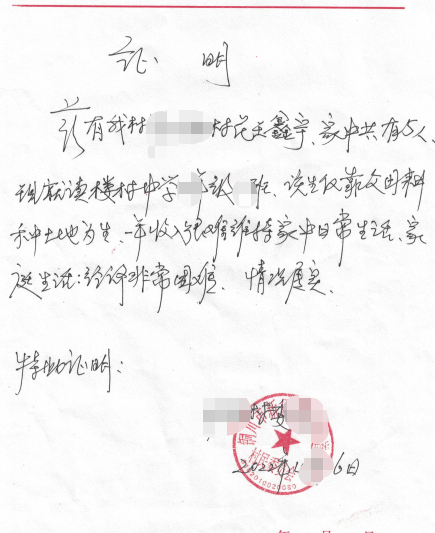 证明
兹有我村 村民王鑫宇、家中共有5人、
现就读楼村中学 年级 班、该生仅靠父母耕
种土地为生 一年收入很难维持家中日常生活、家
庭生活 非常困难、情况属实、
特此证明：
2022年 6日